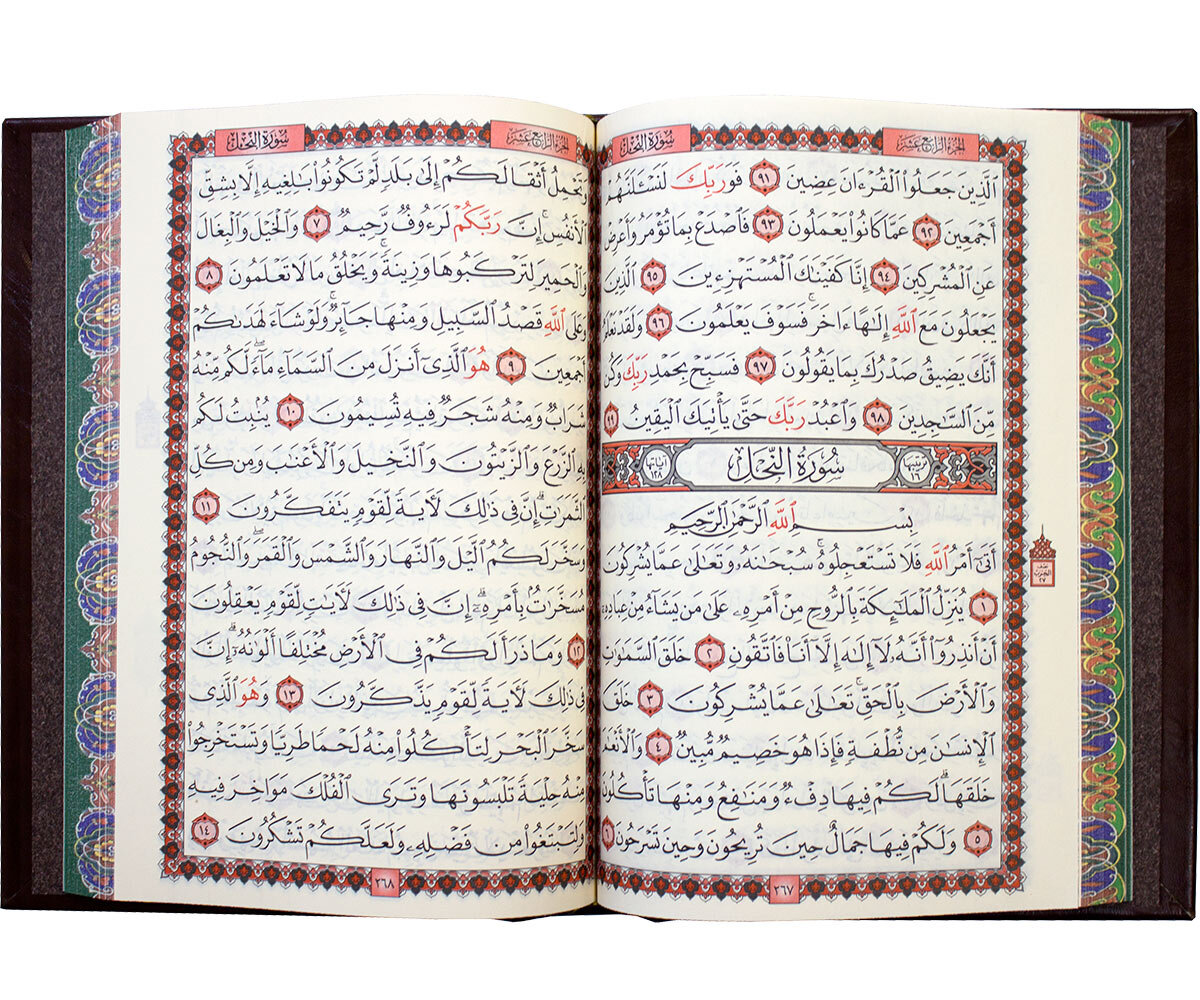 الجزء الرابع عشر
سورة النحل
الَّذِينَ جَعَلُوا الْقُرْءَانَ عِضِينَ ٩١ فَوَرَبِّكَ لَنَسْـَٔلَنَّهُمْ
أَجْمَعِينَ ٩٢ عَمَّا كَانُوا يَعْمَلُونَ ٩٣ فَاصْدَعْ بِمَا تُؤْمَرُ وَأَعْرِضْ
عَنِ الْمُشْرِكِينَ ٩٤ إِنَّا كَفَيْنَٰكَ الْمُسْتَهْزِءِينَ ٩٥ الَّذِينَ
يَجْعَلُونَ مَعَ اللَّهِ إِلَٰهًا ءَاخَرَ ۚ فَسَوْفَ يَعْلَمُونَ ٩٦ وَلَقَدْ نَعْلَمُ
أَنَّكَ يَضِيقُ صَدْرُكَ بِمَا يَقُولُونَ ٩٧ فَسَبِّحْ بِحَمْدِ رَبِّكَ وَكُن
مِّنَ السَّٰجِدِينَ ٩٨ وَاعْبُدْ رَبَّكَ حَتَّىٰ يَأْتِيَكَ الْيَقِينُ ٩٩
ترتيبها ١٦ سورة النحل آياتها ١٢٨
بِسْمِ اللَّهِ الرَّحْمَٰنِ الرَّحِيمِ
أَتَىٰٓ أَمْرُ اللَّهِ فَلَا تَسْتَعْجِلُوهُ ۚ سُبْحَٰنَهُۥ وَتَعَٰلَىٰ عَمَّا يُشْرِكُونَ
١ يُنَزِّلُ الْمَلَٰٓئِكَةَ بِالرُّوحِ مِنْ أَمْرِهِۦ عَلَىٰ مَن يَشَآءُ مِنْ عِبَادِهِۦٓ
أَنْ أَنذِرُوٓا أَنَّهُۥ لَآ إِلَٰهَ إِلَّآ أَنَا۠ فَاتَّقُونِ ٢ خَلَقَ السَّمَٰوَٰتِ
وَالْأَرْضَ بِالْحَقِّ ۚ تَعَٰلَىٰ عَمَّا يُشْرِكُونَ ٣ خَلَقَ
الْإِنسَٰنَ مِن نُّطْفَةٍ فَإِذَا هُوَ خَصِيمٌ مُّبِينٌ ٤ وَالْأَنْعَٰمَ
خَلَقَهَا ۗ لَكُمْ فِيهَا دِفْءٌ وَمَنَٰفِعُ وَمِنْهَا تَأْكُلُونَ
٥ وَلَكُمْ فِيهَا جَمَالٌ حِينَ تُرِيحُونَ وَحِينَ تَسْرَحُونَ ٦
٢٦٧
نصف
الحزب
٢٧
الجزء الرابع عشر
سورة النحل
وَتَحْمِلُ أَثْقَالَكُمْ إِلَىٰ بَلَدٍ لَّمْ تَكُونُوا بَٰلِغِيهِ إِلَّا بِشِقِّ
الْأَنفُسِ ۚ إِنَّ رَبَّكُمْ لَرَءُوفٌ رَّحِيمٌ ٧ وَالْخَيْلَ وَالْبِغَالَ
وَالْحَمِيرَ لِتَرْكَبُوهَا وَزِينَةً ۚ وَيَخْلُقُ مَا لَا تَعْلَمُونَ ٨
وَعَلَى اللَّهِ قَصْدُ السَّبِيلِ وَمِنْهَا جَآئِرٌ ۚ وَلَوْ شَآءَ لَهَدَىٰكُمْ
أَجْمَعِينَ ٩ هُوَ الَّذِىٓ أَنزَلَ مِنَ السَّمَآءِ مَآءً ۖ لَّكُم مِّنْهُ
شَرَابٌ وَمِنْهُ شَجَرٌ فِيهِ تُسِيمُونَ ١٠ يُنۢبِتُ لَكُم
بِهِ الزَّرْعَ وَالزَّيْتُونَ وَالنَّخِيلَ وَالْأَعْنَٰبَ وَمِن كُلِّ
الثَّمَرَٰتِ ۗ إِنَّ فِى ذَٰلِكَ لَـَٔايَةً لِّقَوْمٍ يَتَفَكَّرُونَ ١١
وَسَخَّرَ لَكُمُ الَّيْلَ وَالنَّهَارَ وَالشَّمْسَ وَالْقَمَرَ ۖ وَالنُّجُومُ
مُسَخَّرَٰتٌۢ بِأَمْرِهِۦٓ ۗ إِنَّ فِى ذَٰلِكَ لَـَٔايَٰتٍ لِّقَوْمٍ يَعْقِلُونَ
١٢ وَمَا ذَرَأَ لَكُمْ فِى الْأَرْضِ مُخْتَلِفًا أَلْوَٰنُهُۥٓ ۗ إِنَّ
فِى ذَٰلِكَ لَـَٔايَةً لِّقَوْمٍ يَذَّكَّرُونَ ١٣ وَهُوَ الَّذِى
سَخَّرَ الْبَحْرَ لِتَأْكُلُوا مِنْهُ لَحْمًا طَرِيًّا وَتَسْتَخْرِجُوا
مِنْهُ حِلْيَةً تَلْبَسُونَهَا وَتَرَى الْفُلْكَ مَوَاخِرَ فِيهِ
وَلِتَبْتَغُوا مِن فَضْلِهِۦ وَلَعَلَّكُمْ تَشْكُرُونَ ١٤
٢٦٨